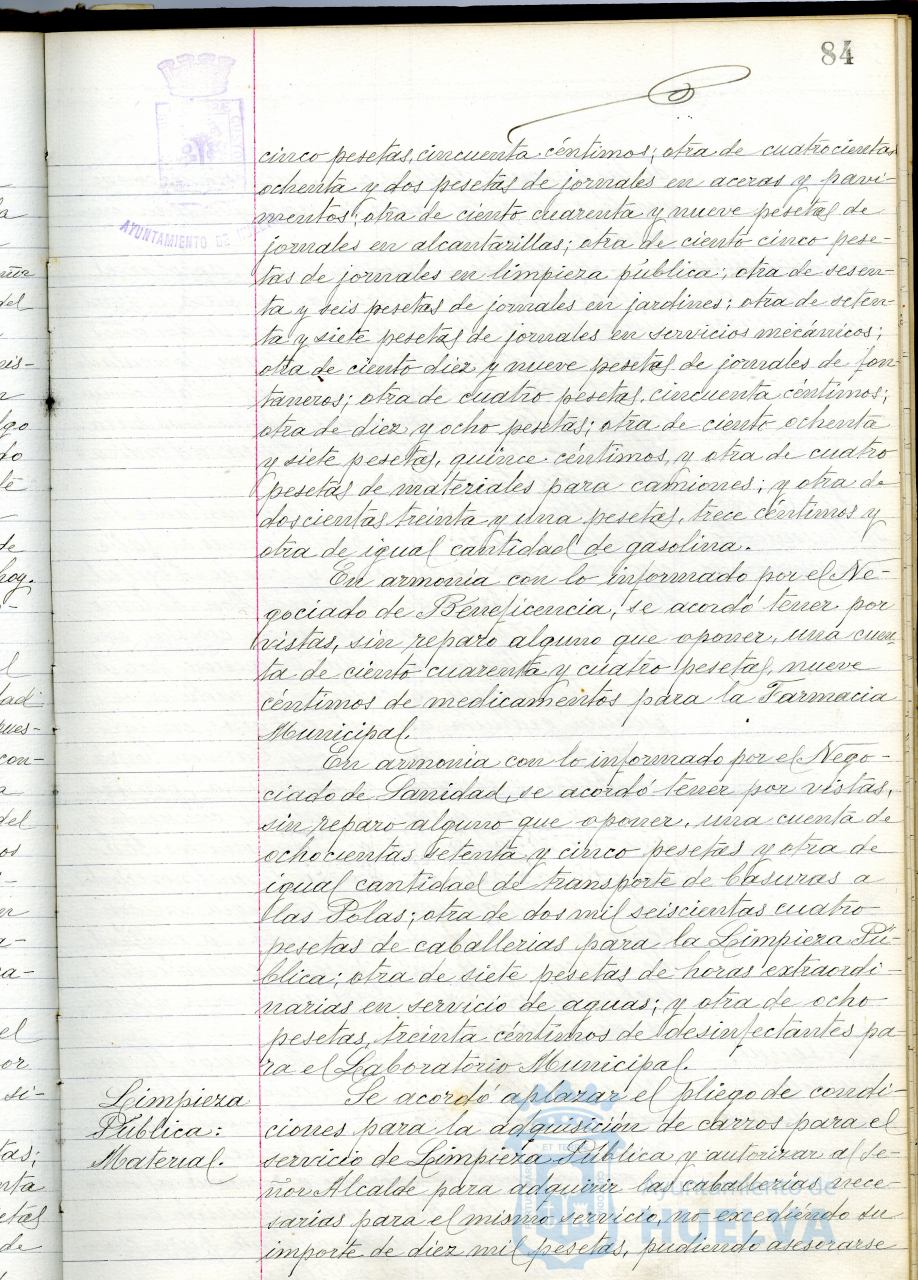 84
AYUNTAMIENTO DE
cinco pesetas, cincuenta céntimos; otra de cuatrocientas
ochenta y dos pesetas de jornales en aceras y pavi-
mentos; otra de ciento cuarenta y nueve pesetas de
jornales en alcantarillas; otra de ciento cinco pese-
tas de jornales en limpieza pública; otra de sesen-
ta y seis pesetas de jornales en jardines; otra de seten-
ta y siete pesetas de jornales en servicios mecánicos;
otra de ciento diez y nueve pesetas de jornales de fon-
taneros; otra de cuatro pesetas, cincuenta céntimos;
otra de diez y ocho pesetas; otra de ciento ochenta
y siete pesetas, quince céntimos, y otra de cuatro
pesetas de materiales para camiones; y otra de
doscientas treinta y una pesetas, trece céntimos y
otra de igual cantidad de gasolina.
En armonía con lo informado por el Ne-
gociado de Beneficencia, se acordó tener por
vistas, sin reparo alguno que oponer, una cuen-
ta de ciento cuarenta y cuatro pesetas, nueve
céntimos de medicamentos para la Farmacia
Municipal.
En armonía con lo informado por el Nego-
ciado de Sanidad, se acordó tener por vistas,
sin reparo alguno que oponer, una cuenta de
ochocientas setenta y cinco pesetas y otra de
igual cantidad de transporte de basuras a
las Polas; otra de dos mil seiscientas cuatro
pesetas de caballerias para la Limpieza Pú-
blica; otra de siete pesetas de horas extraordi-
narias en servicio de aguas; y otra de ocho
pesetas, treinta céntimos de desinfectantes pa-
ra el Laboratorio Municipal.
Limpieza
Pública:
Material.
Se acordó aplazar el pliego de condi-
ciones para la adquisición de carros para el
servicio de Limpieza Pública y autorizar al Se-
ñor Alcalde para adquirir las caballerías nece-
sarias para el mismo servicio, no excediendo su
importe de diez mil pesetas, pudiendo asesorarse
Ayuntamiento de
HUELVA